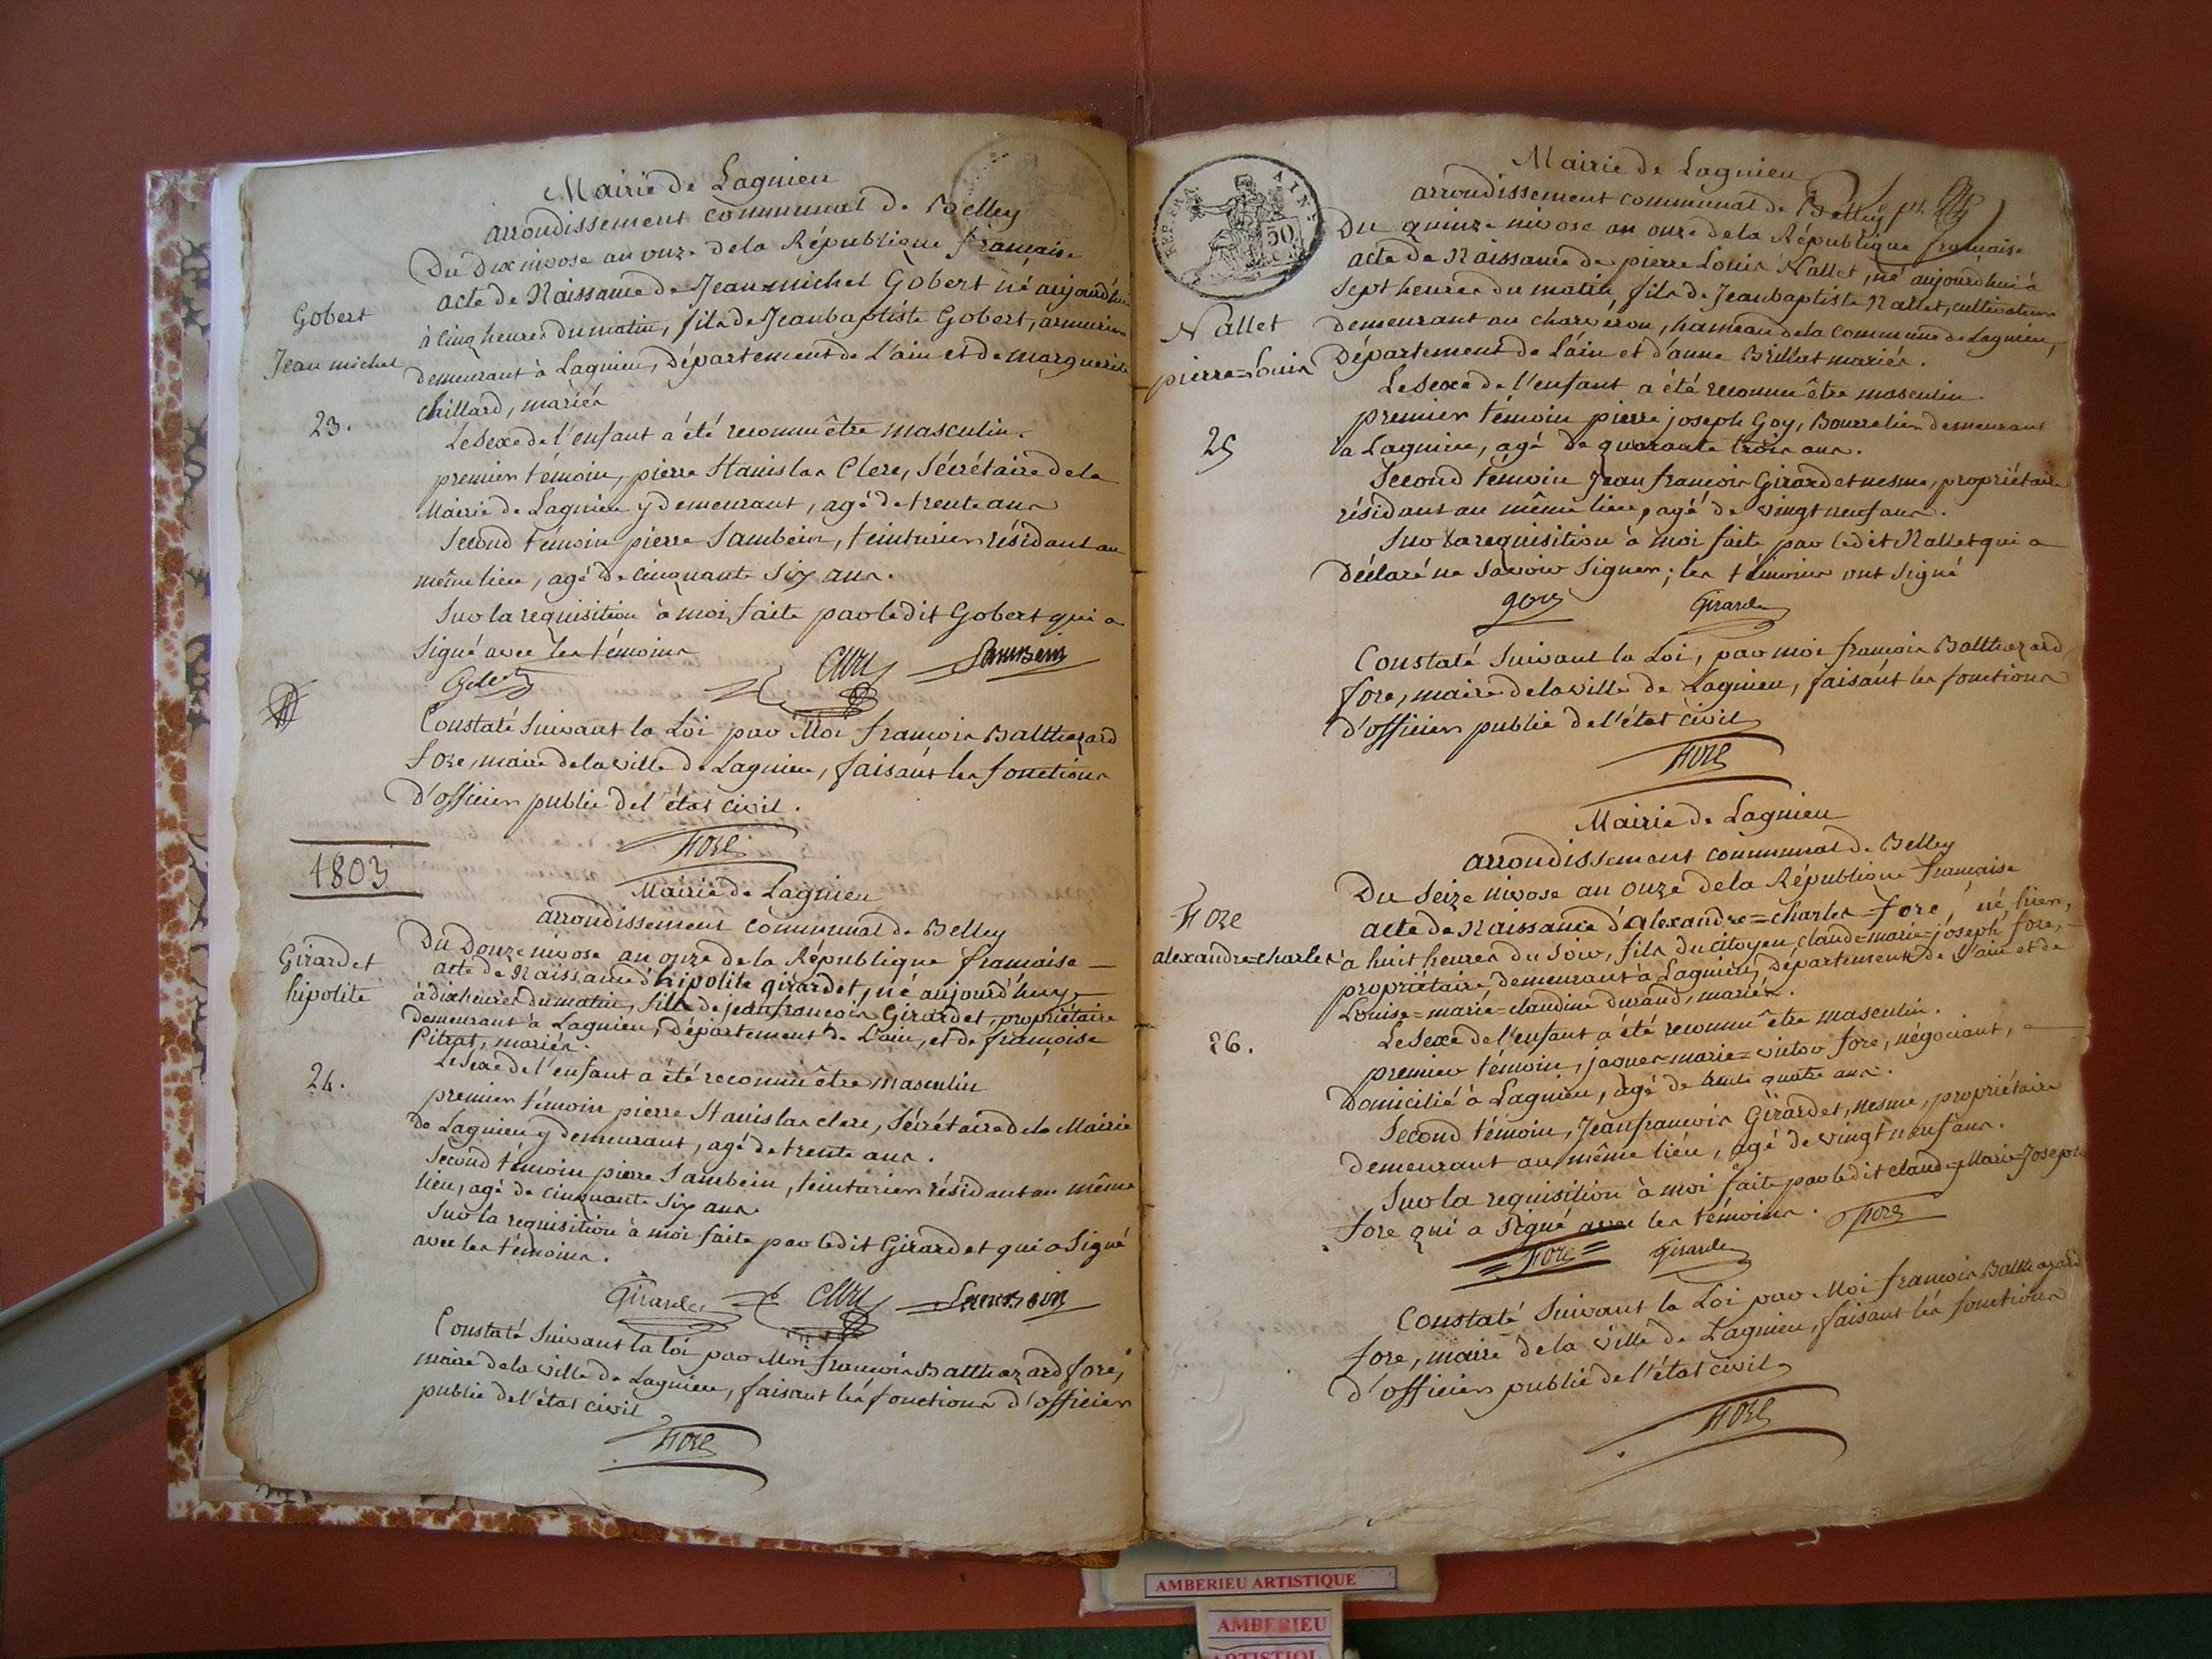 Mairie de Lagnieu
arrondissement communal de Belley
Du dix nivose an onze de la République française
acte de Naissance de Jean michel Gobert né aujourd'hui
à cinq heures du matin, fils de Jean baptiste Gobert, armurier
demeurant à Lagnieu, Département de L'ain et de marguerite
Chillard, mariés
Gobert
Jean michel
23.
Le Sexe de l'enfant a été reconnu être masculin.
premier témoin, pierre Stanislas Clerc, Sécrétaire de la
Mairie de Lagnieu y demeurant, agé de trente ans
Second témoin pierre Sambein, teinturier résidant au
même lieu, agé de cinquante Six ans.
Sur la requisition à moi faite par le dit Gobert qui a
Signé avec les témoins
Sambein
Constaté Suivant la Loi par Moi françois Balthazard
fore, maire de la ville de Lagnieu, faisant les fonctions
d'officier public de l'état civil.
Fore
1803
Mairie de Lagnieu
arrondissement communal de Belley
Du Douze nivose an onze de la République française
acte de Naissance d'hipolite girardet, né aujourd'huy
à dix heures du matin, fils de jean françois Girardet, propriétaire
demeurant à Lagnieu, département de L'ain, et de françoise
Pitrat, mariés.
Girardet
hipolite
24.
Le Sexe de l'enfant a été reconnu être masculin
premier témoin pierre Stanislas clerc, Sécrétaire de la Mairie
de Lagnieu y demeurant, agé de trente ans.
Second témoin pierre Sambein, teinturier résidant au même
lieu, agé de cinquante Six ans
Sur la requisition à moi faite par le dit Girardet qui a Signé
avec les témoins.
Girardet Sambein
Constaté Suivant la loi par Moi françois Balthazard fore,
maire de la ville de Lagnieu, faisant les fonctions d'officier
public de l'état civil
Fore
REP. FRA. AIN
50
Mairie de Lagnieu
arrondissement communal de Belley
Du quinze nivose an onze de la République française
acte de Naissance de pierre Louis Nallet, né aujourd'hui à
Sept heures du matin, fils de Jean baptiste Nallet, cultivateur
demeurant au charveron, hameau de la commune de Lagnieu,
Département de L'ain et d'anne Brillat mariés.
Nallet
pierre=Louis
25
Le Sexe de l'enfant a été reconnu être masculin.
premier témoin pierre joseph Goy, Bourrelier demeurant
à Lagnieu, agé de quarante trois ans.
Second témoin Jean françois Girardet nesme, propriétaire
résidant au même lieu, agé de vingt neuf ans.
Sur la requisition à moi faite par le dit Nallet qui a
Déclaré ne Savoir Signer; les témoins ont Signé
goy Girardet
Constaté Suivant la Loi, par moi françois Balthazard
fore, maire de la ville de Lagnieu, faisant les fonctions
d'officier public de l'état civil
Fore
Mairie de Lagnieu
arrondissement communal de Belley
Du Seize nivose an onze de la République française
acte de Naissance d'alexandre=charles fore, né hier,
à huit heures du Soir, fils du citoyen claude=marie=joseph fore,
propriétaire demeurant à Lagnieu, Département de L'ain et de
Louise=marie=claudine durand, mariés.
Fore
alexandre=charles
26.
Le Sexe de l'enfant a été reconnu être masculin.
premier témoin, jaques=marie=victor fore, négociant,
domicilié à Lagnieu, agé de trente quatre ans.
Second témoin, Jean françois Girardet, nesme, propriétaire
demeurant au même lieu, agé de vingt neuf ans.
Sur la requisition à moi faite par le dit claude=Marie=Joseph
fore qui a Signé avec les témoins. Fore
Fore Girardet
Constaté Suivant la Loi par Moi françois Balthazard
fore, maire de la ville de Lagnieu, faisant les fonctions
d'officier public de l'état civil
Fore
AMBERIEU ARTISTIQUE
AMBERIEU
ARTISTIQU